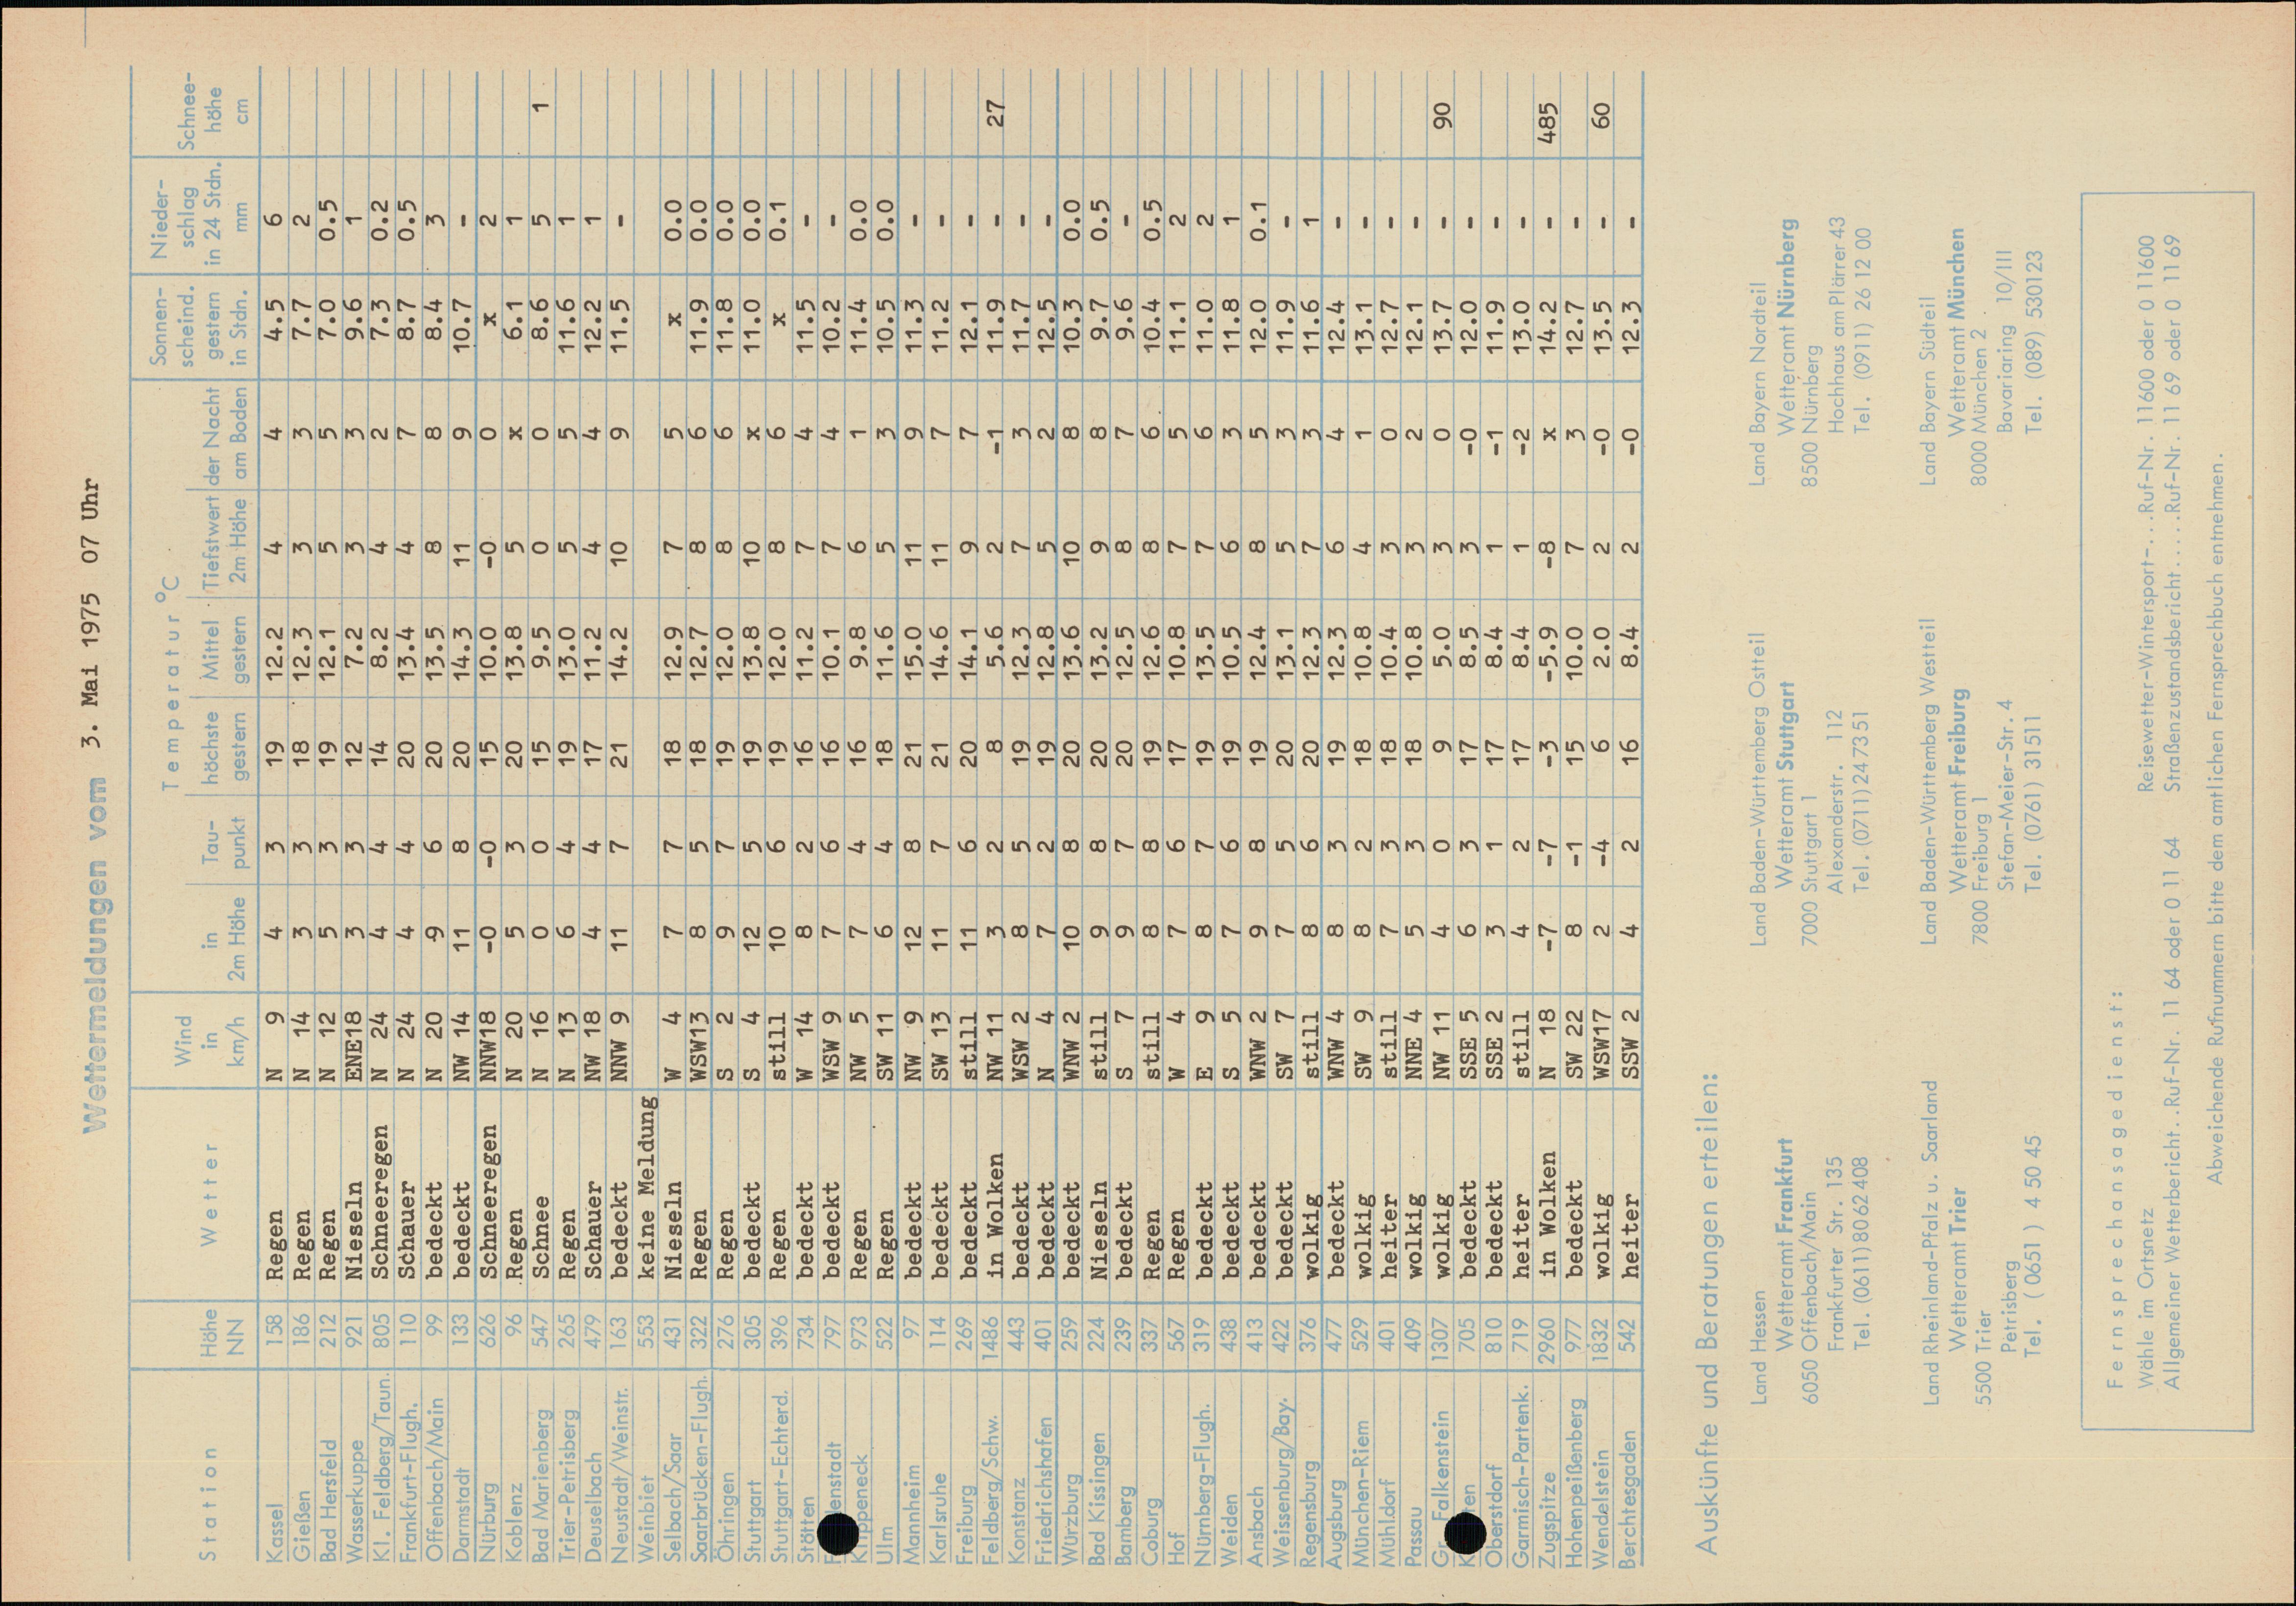 Wettermeldungen vom 3. Mai 1975 07 Uhr
Station Höhe NN Wetter Wind in km/h Temperatur °C in 2m Höhe Tau-punkt höchste gestern Mittel gestern Tiefstwert der Nacht 2m Höhe am Boden Sonnen-scheind. gestern in Stdn. Nieder-schlag in 24 Stdn. mm Schnee-höhe cm
Kassel 158 Regen N 9 4 3 19 12.2 4 4 4.5 6
Gießen 186 Regen N 14 3 3 18 12.3 3 3 7.7 2
Bad Hersfeld 212 Regen N 12 5 3 19 12.1 5 5 7.0 0.5
Wasserkuppe 921 Nieseln ENE18 3 3 12 7.2 3 3 9.6 1
Kl. Feldberg/Taun. 805 Schneeregen N 24 4 4 14 8.2 4 2 7.3 0.2
Frankfurt-Flugh. 110 Schauer N 24 4 4 20 13.4 4 7 8.7 0.5
Offenbach/Main 99 bedeckt N 20 9 6 20 13.5 8 8 8.4 3
Darmstadt 133 bedeckt NW 14 11 8 20 14.3 11 9 10.7 -
Nürburg 626 Schneeregen NNW18 -0 -0 15 10.0 -0 0 x 2
Koblenz 96 Regen N 20 5 3 20 13.8 5 x 6.1 1
Bad Marienberg 547 Schnee N 16 0 0 15 9.5 0 0 8.6 5 1
Trier-Petrisberg 265 Regen N 13 6 4 19 13.0 5 5 11.6 1
Deuselbach 479 Schauer NW 18 4 4 17 11.2 4 4 12.2 1
Neustadt/Weinstr. 163 bedeckt NNW 9 11 7 21 14.2 10 9 11.5 -
Weinbiet 553 keine Meldung
Selbach/Saar 431 Nieseln W 4 7 7 18 12.9 7 5 x 0.0
Saarbrücken-Flugh. 322 Regen WSW13 8 5 18 12.7 8 6 11.9 0.0
Öhringen 276 Regen S 2 9 7 19 12.0 8 6 11.8 0.0
Stuttgart 305 bedeckt S 4 12 5 19 13.8 10 x 11.0 0.0
Stuttgart-Echterd. 396 Regen still 10 6 19 12.0 8 6 x 0.1
Stötten 734 bedeckt W 14 8 2 16 11.2 7 4 11.5 -
denstadt 797 bedeckt WSW 9 7 6 16 10.1 7 4 10.2 -
Klippeneck 973 Regen NW 5 7 4 16 9.8 6 1 11.4 0.0
Ulm 522 Regen SW 11 6 4 18 11.6 5 3 10.5 0.0
Mannheim 97 bedeckt NW 9 12 8 21 15.0 11 9 11.3 -
Karlsruhe 114 bedeckt SW 13 11 7 21 14.6 11 7 11.2 -
Freiburg 269 bedeckt still 11 6 20 14.1 9 7 12.1 -
Feldberg/Schw. 1486 in Wolken NW 11 3 2 8 5.6 2 -1 11.9 - 27
Konstanz 443 bedeckt WSW 2 8 5 19 12.3 7 3 11.7 -
Friedrichshafen 401 bedeckt N 4 7 2 19 12.8 5 2 12.5 -
Würzburg 259 bedeckt WNW 2 10 8 20 13.6 10 8 10.3 0.0
Bad Kissingen 224 Nieseln still 9 8 20 13.2 9 8 9.7 0.5
Bamberg 239 bedeckt S 7 9 7 20 12.5 8 7 9.6 -
Coburg 337 Regen still 8 8 19 12.6 8 6 10.4 0.5
Hof 567 Regen W 4 7 6 17 10.8 7 5 11.1 2
Nürnberg-Flugh. 319 bedeckt E 9 8 7 19 13.5 7 6 11.0 2
Weiden 438 bedeckt S 5 7 6 19 10.5 6 3 11.8 1
Ansbach 413 bedeckt WNW 2 9 8 19 12.4 8 5 12.0 0.1
Weissenburg/Bay. 422 bedeckt SW 7 7 5 20 13.1 5 3 11.9 -
Regensburg 376 wolkig still 8 6 20 12.3 7 3 11.6 1
Augsburg 477 bedeckt WNW 4 8 3 19 12.3 6 4 12.4 -
München-Riem 529 wolkig SW 9 8 2 18 10.8 4 1 13.1 -
Mühldorf 401 heiter still 7 3 18 10.4 3 0 12.7 -
Passau 409 wolkig NNE 4 5 3 18 10.8 3 2 12.1 -
Gr. Falkenstein 1307 wolkig NW 11 4 0 9 5.0 3 0 13.7 - 90
K ten 705 bedeckt SSE 5 6 3 17 8.5 3 -0 12.0 -
Oberstdorf 810 bedeckt SSE 2 3 1 17 8.4 1 -1 11.9 -
Garmisch-Partenk. 719 heiter still 4 2 17 8.4 1 -2 13.0 -
Zugspitze 2960 in Wolken N 18 -7 -7 -3 -5.9 -8 x 14.2 - 485
Hohenpeißenberg 977 bedeckt SW 22 8 -1 15 10.0 7 3 12.7 -
Wendelstein 1832 wolkig WSW17 2 -4 6 2.0 2 -0 13.5 - 60
Berchtesgaden 542 heiter SSW 2 4 2 16 8.4 2 -0 12.3 -
Auskünfte und Beratungen erteilen:
Land Hessen
Wetteramt Frankfurt
6050 Offenbach/Main
Frankfurter Str. 135
Tel. (0611) 80 62 408
Land Baden-Württemberg Ostteil
Wetteramt Stuttgart
7000 Stuttgart 1
Alexanderstr. 112
Tel. (0711) 24 73 51
Land Bayern Nordteil
Wetteramt Nürnberg
8500 Nürnberg
Hochhaus am Plärrer 43
Tel. (0911) 26 12 00
Land Rheinland-Pfalz u. Saarland
Wetteramt Trier
5500 Trier
Petrisberg
Tel. (0651) 4 50 45
Land Baden-Württemberg Westteil
Wetteramt Freiburg
7800 Freiburg 1
Stefan-Meier-Str. 4
Tel. (0761) 31511
Land Bayern Südteil
Wetteramt München
8000 München 2
Bavariaring 10/III
Tel. (089) 530123
Fernsprechansagedienst:
Wähle im Ortsnetz Reisewetter-Wintersport-...Ruf-Nr. 11600 oder 0 11600
Allgemeiner Wetterbericht..Ruf-Nr. 11 64 oder 0 11 64 Straßenzustandsbericht.....Ruf-Nr. 11 69 oder 0 11 69
Abweichende Rufnummern bitte dem amtlichen Fernsprechbuch entnehmen.